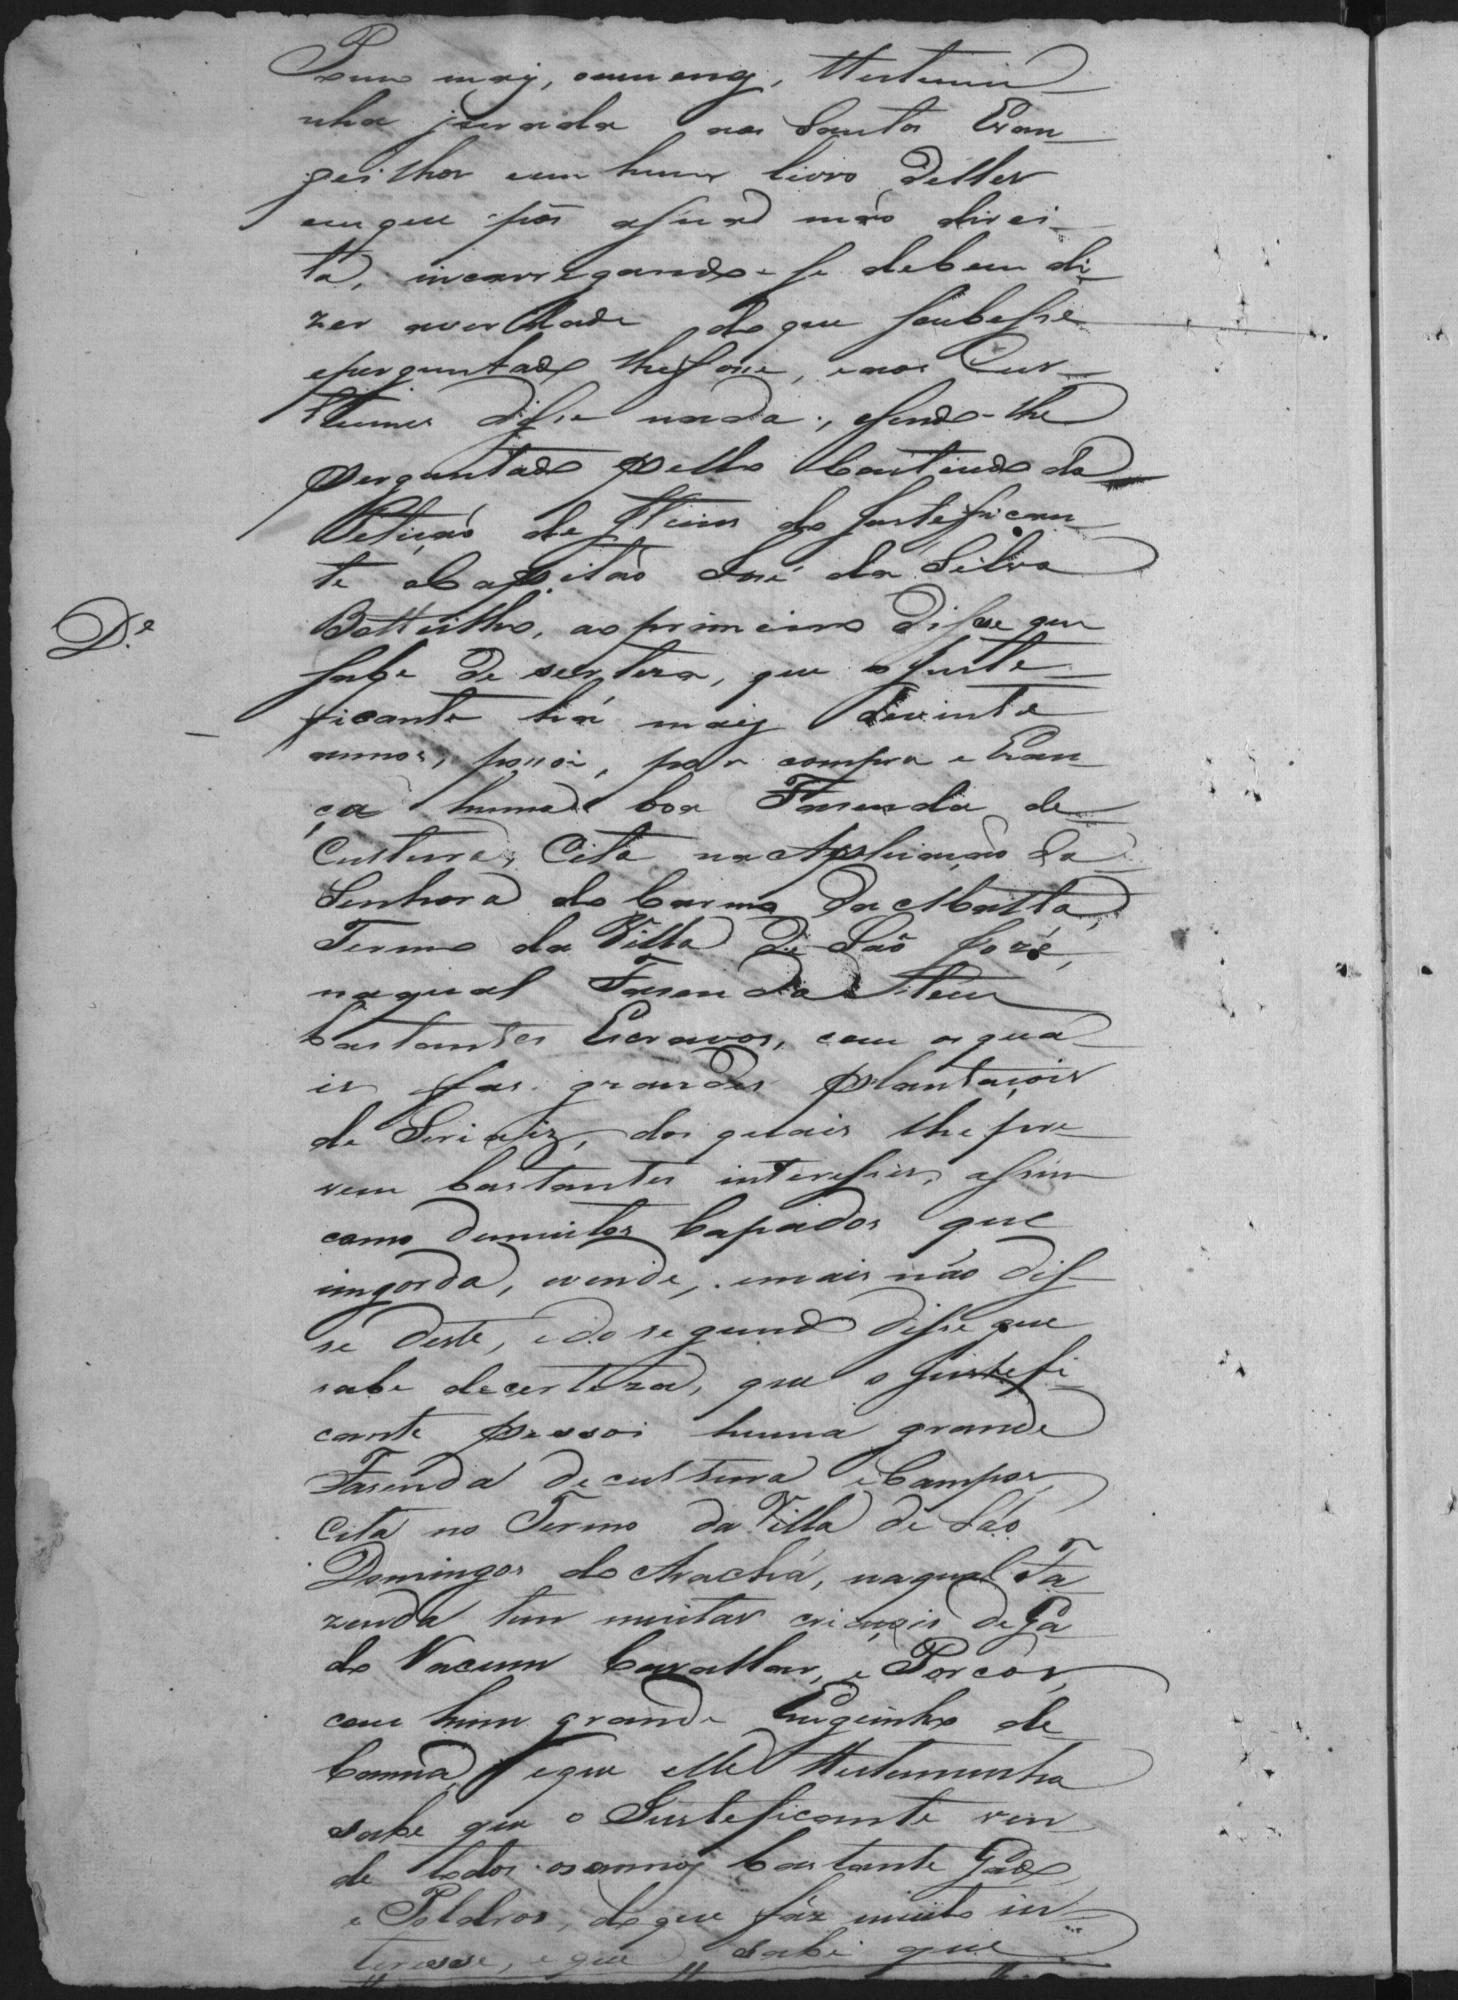 annos mais, ou menos, Testemu-
nha jurada aos Santos Evan-
gelhos em hum livro delles
em que pôs asua mão direi-
ta, incarregando-se debem di-
zer averdade do que soubesse
eperguntado lhefosse, e aos Cus-
tumes disse nada, esendo-lhe
perguntado pello Contiudo da
Petição de Itens do Justefican-
te o Capitão José da Silva
Bottilho, ao primeiro disse que
sabe de serteza, que o Juste-
ficante há mais devinte
annos, possoi, por compra e Eran-
ça huma boa Fasenda de
Cultura, Cita na Aplicação da
Senhora do Carmo da Matta,
Termo da Villa de São José,
naqual Fasenda tem
bastantes Escravos, com osqua-
is fas grandes plantaçois
de Seriais, dos quais lhe pro-
vem bastantes interesses, assim
como demuitos Capados que
ingorda, evende, emais não dis-
se deste, edo segundo disse que
sabe decerteza, que o Justefi-
cante possoi huma grande
Fasenda decultura eCampos,
Cita no Termo da Villa de São
Domingos do Arachá, naqual Fa-
zenda tem muitas criaçois de Ga-
do Vacum Cavallar, e Porcos,
com hum grande Engenho de
Canna, eque elle Testemunha
sabe que o Justeficante ven-
de todos osannos bastante Gado,
e Poldros, do que fáz muito in-
teresse, eque sabe que
De